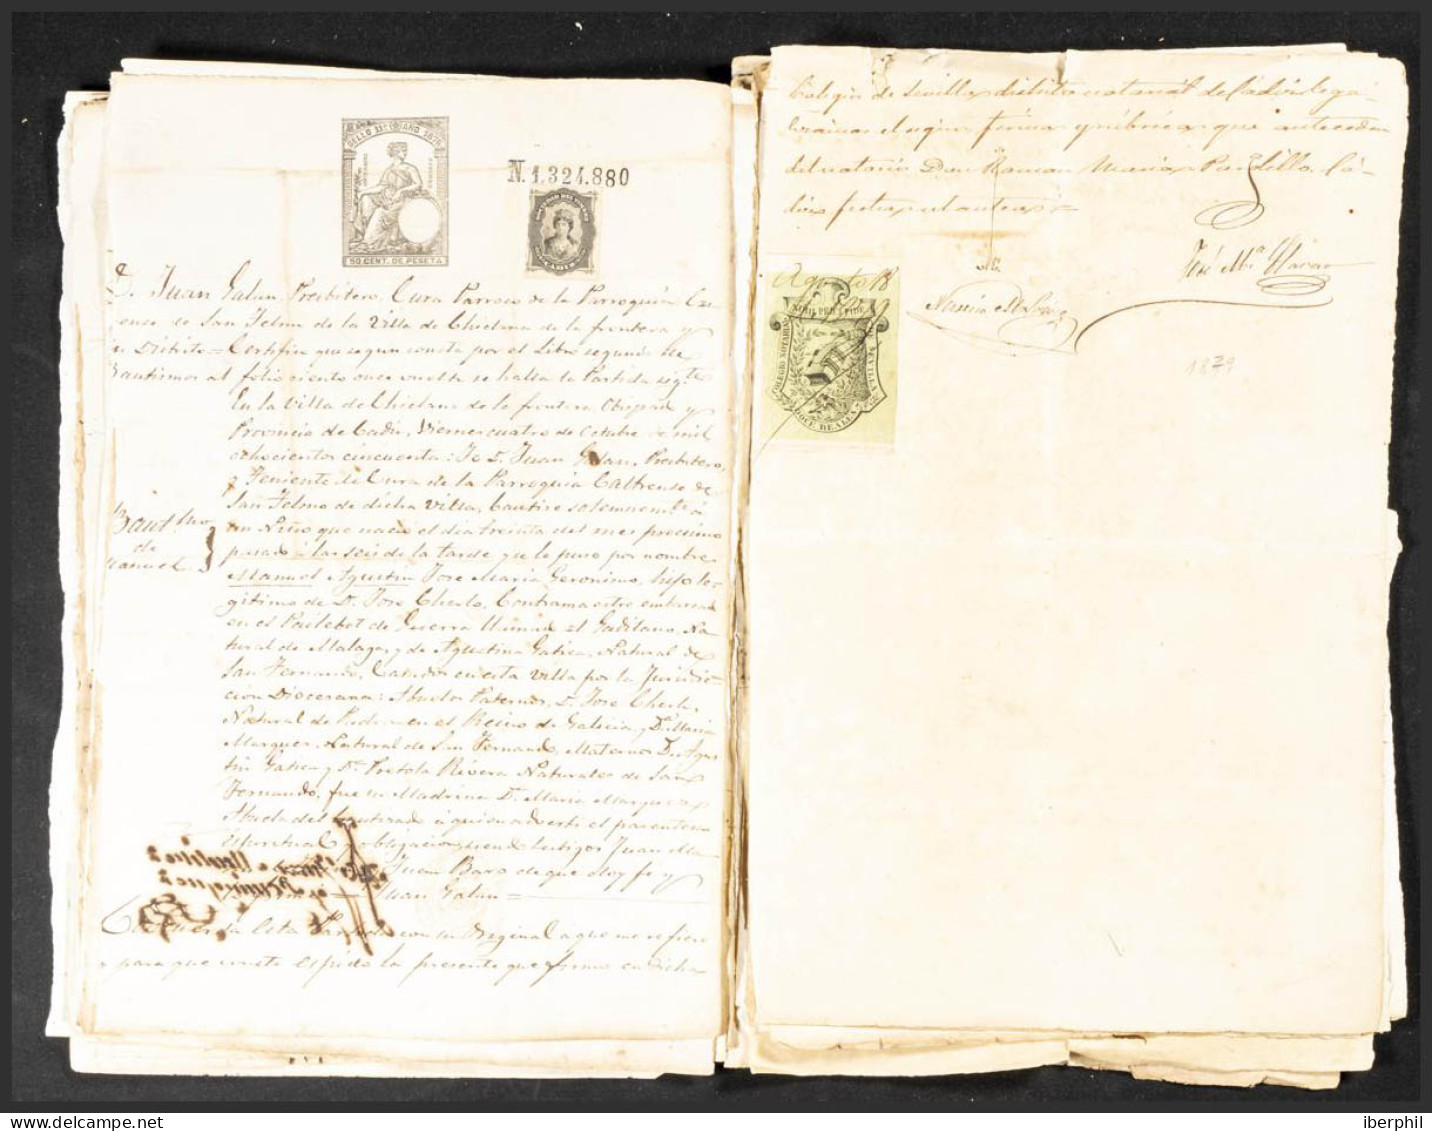 SELLO 11º AÑO 1879
50 CENT. DE PESETA
N. 1.324.880
D. Juan Galan, Presbitero, Cura Parroco de la Parroquia Cas-
trense de San Telmo de la Villa de Chiclana de la frontera y
su Distrito = Certifico que segun consta por el Libro segundo de
Bautismos al folio ciento once vuelto se halla la Partida sigte
En la Villa de Chiclana de la frontera, Obispado y
Provincia de Cadiz, Viernes cuatro de Octubre de mil
ochocientos cincuenta: Yo D. Juan Galan, Presbitero,
y Teniente de Cura de la Parroquia Castrense de
San Telmo de dicha Villa, bautice solemnemte á
un Niño que nació el dia treinta del mes procsimo
pasado a las seis de la tarde que le puso por nombre
Manuel Agustin Jose Maria Geronimo, hijo le-
gitimo de D. Jose Cherle, Contramaestre embarcado
en el Pailebot de Guerra el Gaditano, Na-
tural de Malaga, y de Agustina Gatica, Natural de
San Fernando, Casados en esta Villa por la Jurisdic-
cion Diocesana: Abuelos Paternos, D. Jose Cherle,
Natural de en el Reino de Galicia, y Da. Maria
Marquez, Natural de San Fernando, Maternos D. Agus
tin Gatica y Da. Rivera Naturales de San
Fernando, fue su Madrina Da. Maria Marquez
Abuela del bautizado a quien advertí el parentesco
espiritual y obligaciones siendo testigos Juan
Juan Baro de que doy fe y
Juan Galan =
Bautmo
de
Manuel
Concuerda esta Partida con su Original a que me refiero
y para que conste espido la presente que firmo en dicha
Colegio de Sevilla, distrito notarial de Cadiz lega-
lizamos el signo, firma y rúbrica que anteceden
del notario Don Ramon Maria Pardillo. Cá-
diz fecha ut antea =
José Ma.
Agosto 18
NIHIL PRIUS FIDE
COLEGIO NOTARIAL
1879
iberphil